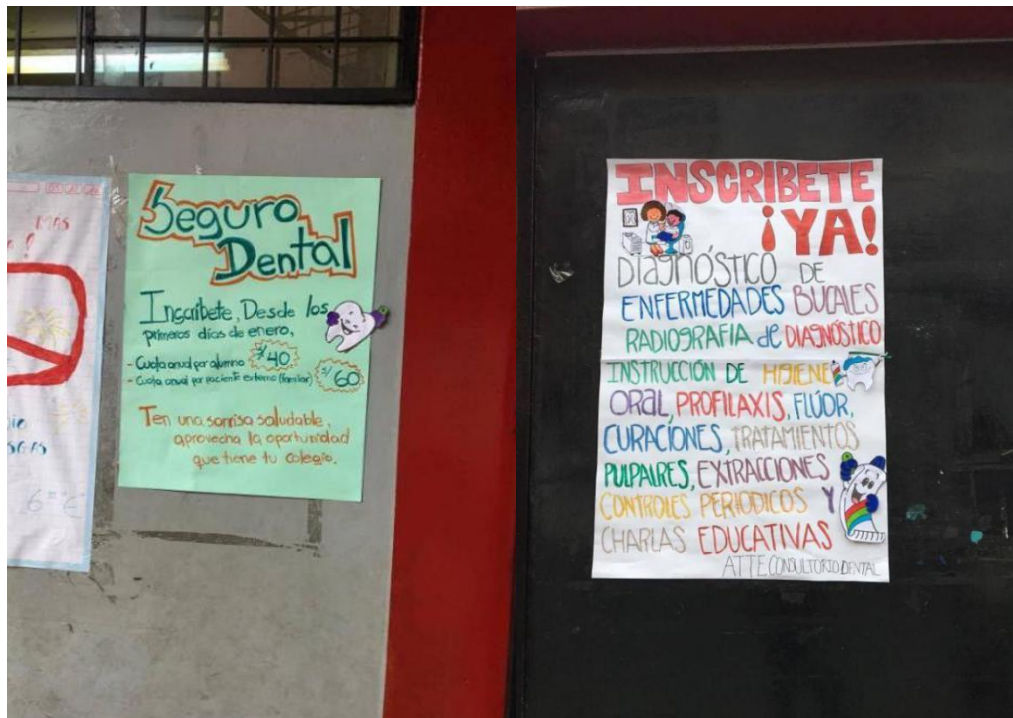 MAS
!
6
Seguro
Dental
Inscribete, Desde los
primeros días de enero,
- Cuota anual por alumno S/ 40
- Cuota anual por paciente externo (familiar) S/ 60
Ten una sonrisa saludable,
aprovecha la oportunidad
que tiene tu colegio.
INSCRIBETE
¡YA!
DIAGNÓSTICO DE
ENFERMEDADES BUCALES
RADIOGRAFIA de DIAGNÓSTICO
INSTRUCCIÓN DE HIGIENE
ORAL, PROFILAXIS, FLÚOR,
CURACIONES, TRATAMIENTOS
PULPAIRES, EXTRACCIONES
CONTROLES PERIODICOS Y
CHARLAS EDUCATIVAS
ATTE CONSULTORIO DENTAL